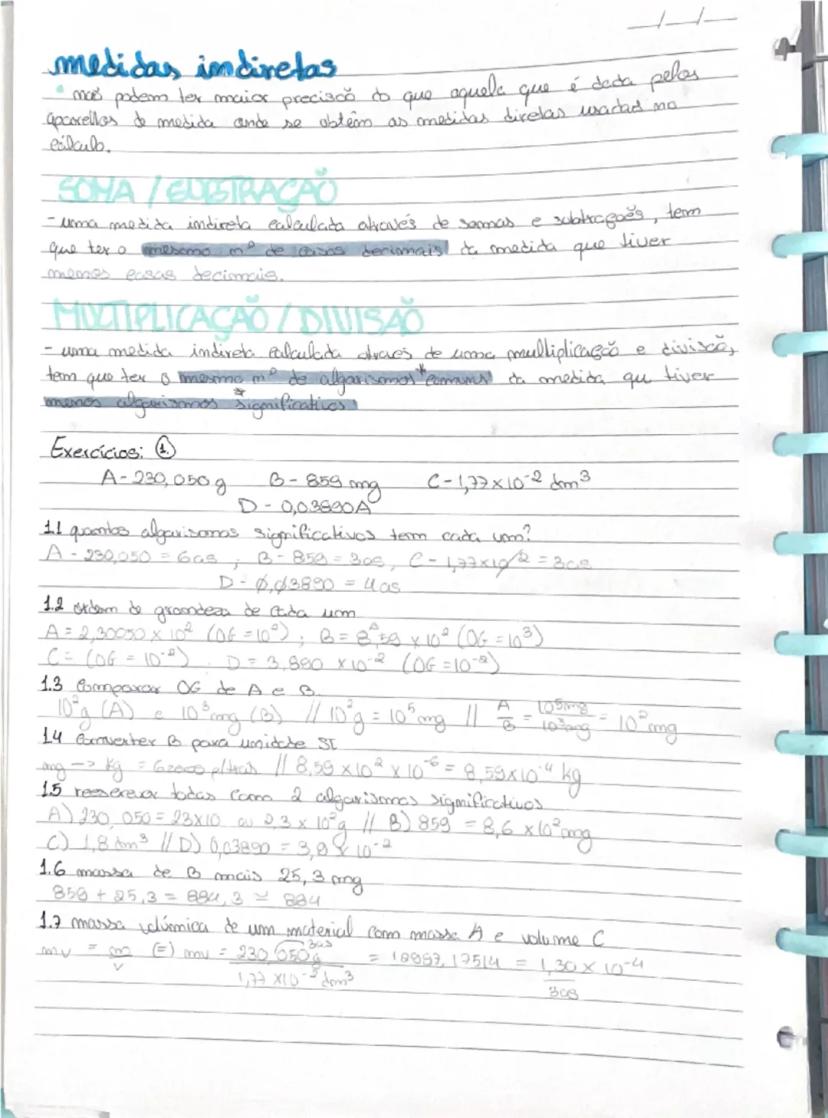 medidas indiretas
• não podem ter maior precisão do que aquela que é dada pelos
aparelhos de medida onde se obtêm as medidas diretas usadas no
cálculo.
SOMA / SUBTRAÇÃO
- uma medida indireta calculada através de somas e subtrações, tem
que ter o mesmo nº de casas decimais da medida que tiver
menos casas decimais.
MULTIPLICAÇÃO / DIVISÃO
- uma medida indireta calculada através de uma multiplicação e divisão,
tem que ter o mesmo nº de algarismos* comuns da medida qu tiver
menos algarismos *significativos
Exercícios: ①
A - 230,050 g B - 859 mg C - 1,77 x 10⁻² dm³
D - 0,03890A
1.1 quantos algarismos significativos tem cada um?
A - 230,050 = 6as ; B - 859 = 3as, C - 1,77x10⁻² = 3as
D - 0,03890 = 4as
1.2 ordem de grandeza de cada um
A = 2,30050 x 10² (OG = 10²) ; B = 8,59 x 10² (OG = 10³)
C = (OG = 10⁻²) . D = 3,890 x 10⁻² (OG = 10⁻²)
1.3 comparar OG de A e B.
10²g (A) e 10³mg (B) // 10²g = 10⁵mg // A/B = 10⁵mg/10³mg = 10²mg
1.4 converter B para unidade SI
mg → kg = 6 casas p/trás // 8,59 x 10² x 10⁻⁶ = 8,59x10⁻⁴ kg
1.5 reescrever todas com 2 algarismos significativos
A) 230,050 = 23x10 ou 2,3 x 10²g // B) 859 = 8,6 x 10²mg
C) 1,8 dm³ // D) 0,03890 = 3,9 x 10⁻²
1.6 massa de B mais 25,3 mg
859 + 25,3 = 884,3 ≃ 884
1.7 massa volúmica de um material com massa A e volume C
mv = m/v (=) mv = 230,050g / 1,77 x10⁻² dm³ = 17514 = 1,30 x 10⁻⁴
3as
3as